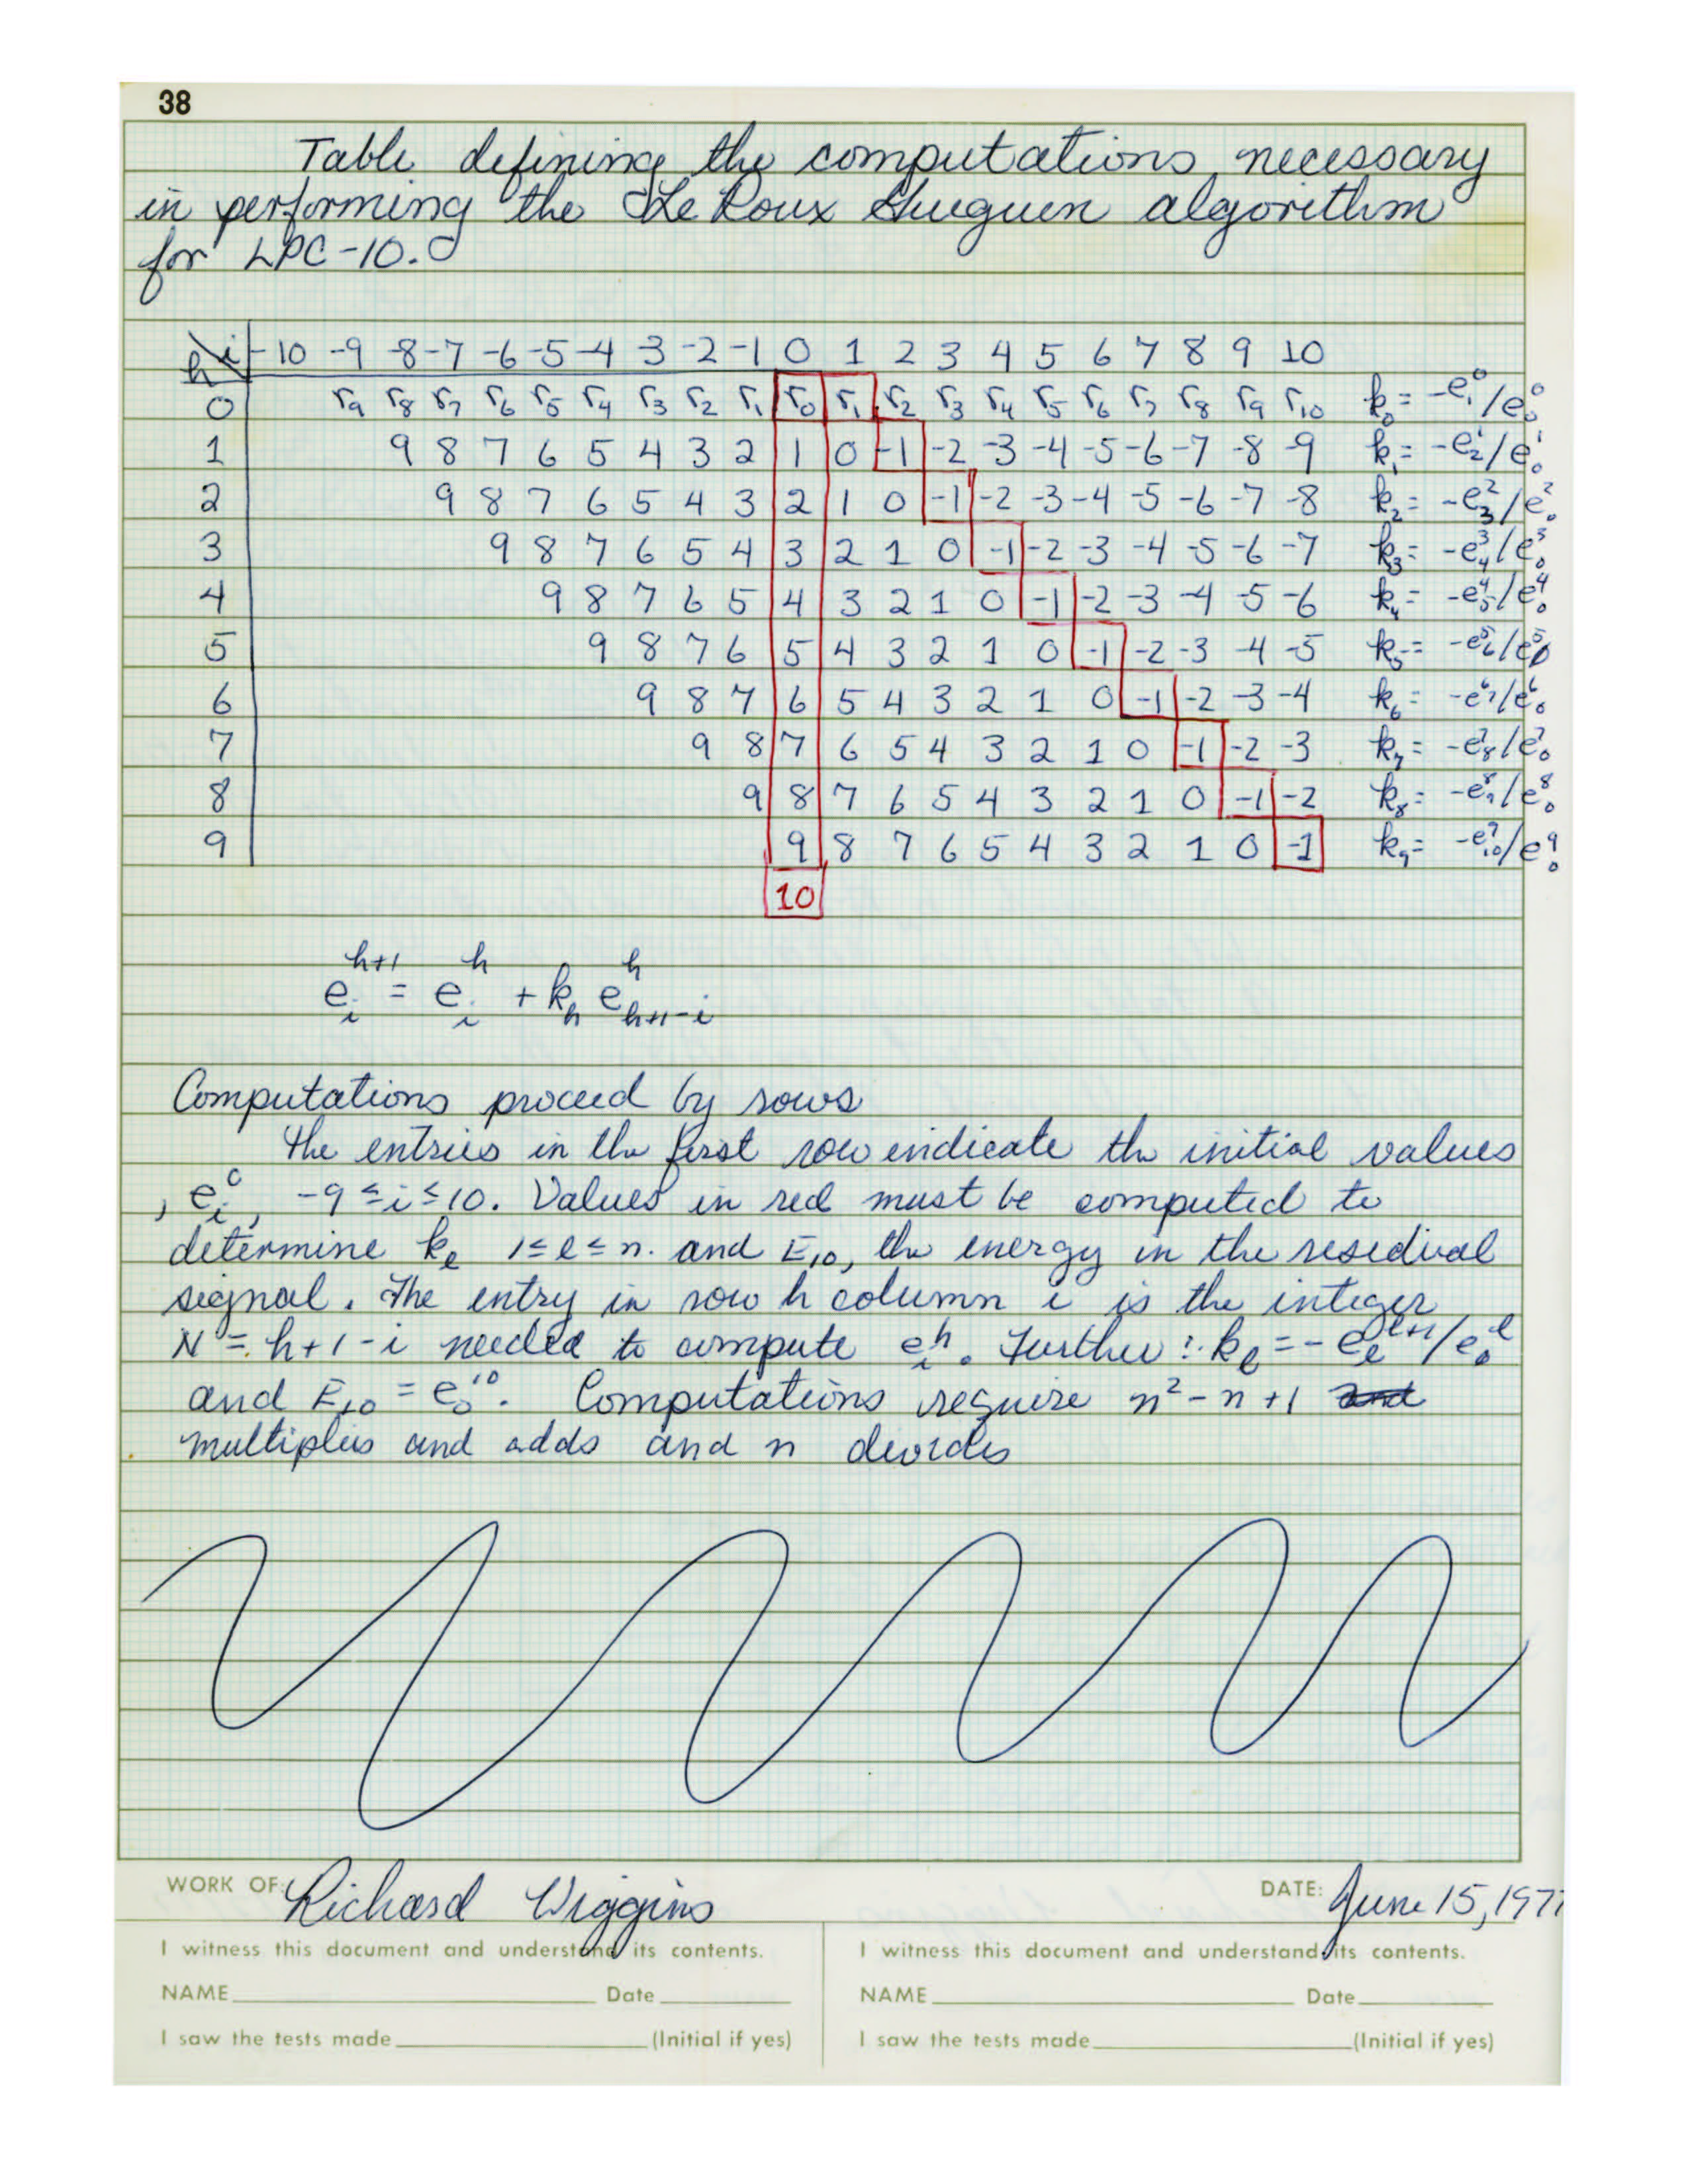 38
Table defining the computations necessary
in performing the Le Roux Gueguen algorithm
for LPC-10.
h\i -10 -9 -8 -7 -6 -5 -4 -3 -2 -1 0 1 2 3 4 5 6 7 8 9 10
0 r9 r8 r7 r6 r5 r4 r3 r2 r1 r0 r1 r2 r3 r4 r5 r6 r7 r8 r9 r10 k₀ = -e₁⁰/e₀⁰
1 9 8 7 6 5 4 3 2 1 0 -1 -2 -3 -4 -5 -6 -7 -8 -9 k₁ = -e₂¹/e₀¹
2 9 8 7 6 5 4 3 2 1 0 -1 -2 -3 -4 -5 -6 -7 -8 k₂ = -e₃²/e₀²
3 9 8 7 6 5 4 3 2 1 0 -1 -2 -3 -4 -5 -6 -7 k₃ = -e₄³/e₀³
4 9 8 7 6 5 4 3 2 1 0 -1 -2 -3 -4 -5 -6 k₄ = -e₅⁴/e₀⁴
5 9 8 7 6 5 4 3 2 1 0 -1 -2 -3 -4 -5 k₅ = -e₆⁵/e₀⁵
6 9 8 7 6 5 4 3 2 1 0 -1 -2 -3 -4 k₆ = -e₇⁶/e₀⁶
7 9 8 7 6 5 4 3 2 1 0 -1 -2 -3 k₇ = -e₈⁷/e₀⁷
8 9 8 7 6 5 4 3 2 1 0 -1 -2 k₈ = -e₉⁸/e₀⁸
9 9 8 7 6 5 4 3 2 1 0 -1 k₉ = -e₁₀⁹/e₀⁹
10
e_i^{h+1} = e_i^h + k_h e_{h+1-i}^h
Computations proceed by rows
The entries in the first row indicate the initial values
, e_i^0, -9 ≤ i ≤ 10. Values in red must be computed to
determine k_l 1 ≤ l ≤ n. and E₁₀, the energy in the residual
signal. The entry in row h column i is the integer
N = h+1-i needed to compute e_i^h. Further: k_l = -e_l^{l+1}/e_0^l
and E₁₀ = e₀¹⁰. Computations require n²-n+1 and
multiplies and adds and n divides
WORK OF: Richard Wiggins
DATE: June 15, 1977
I witness this document and understand its contents.
I witness this document and understand its contents.
NAME Date
NAME Date
I saw the tests made (Initial if yes)
I saw the tests made (Initial if yes)